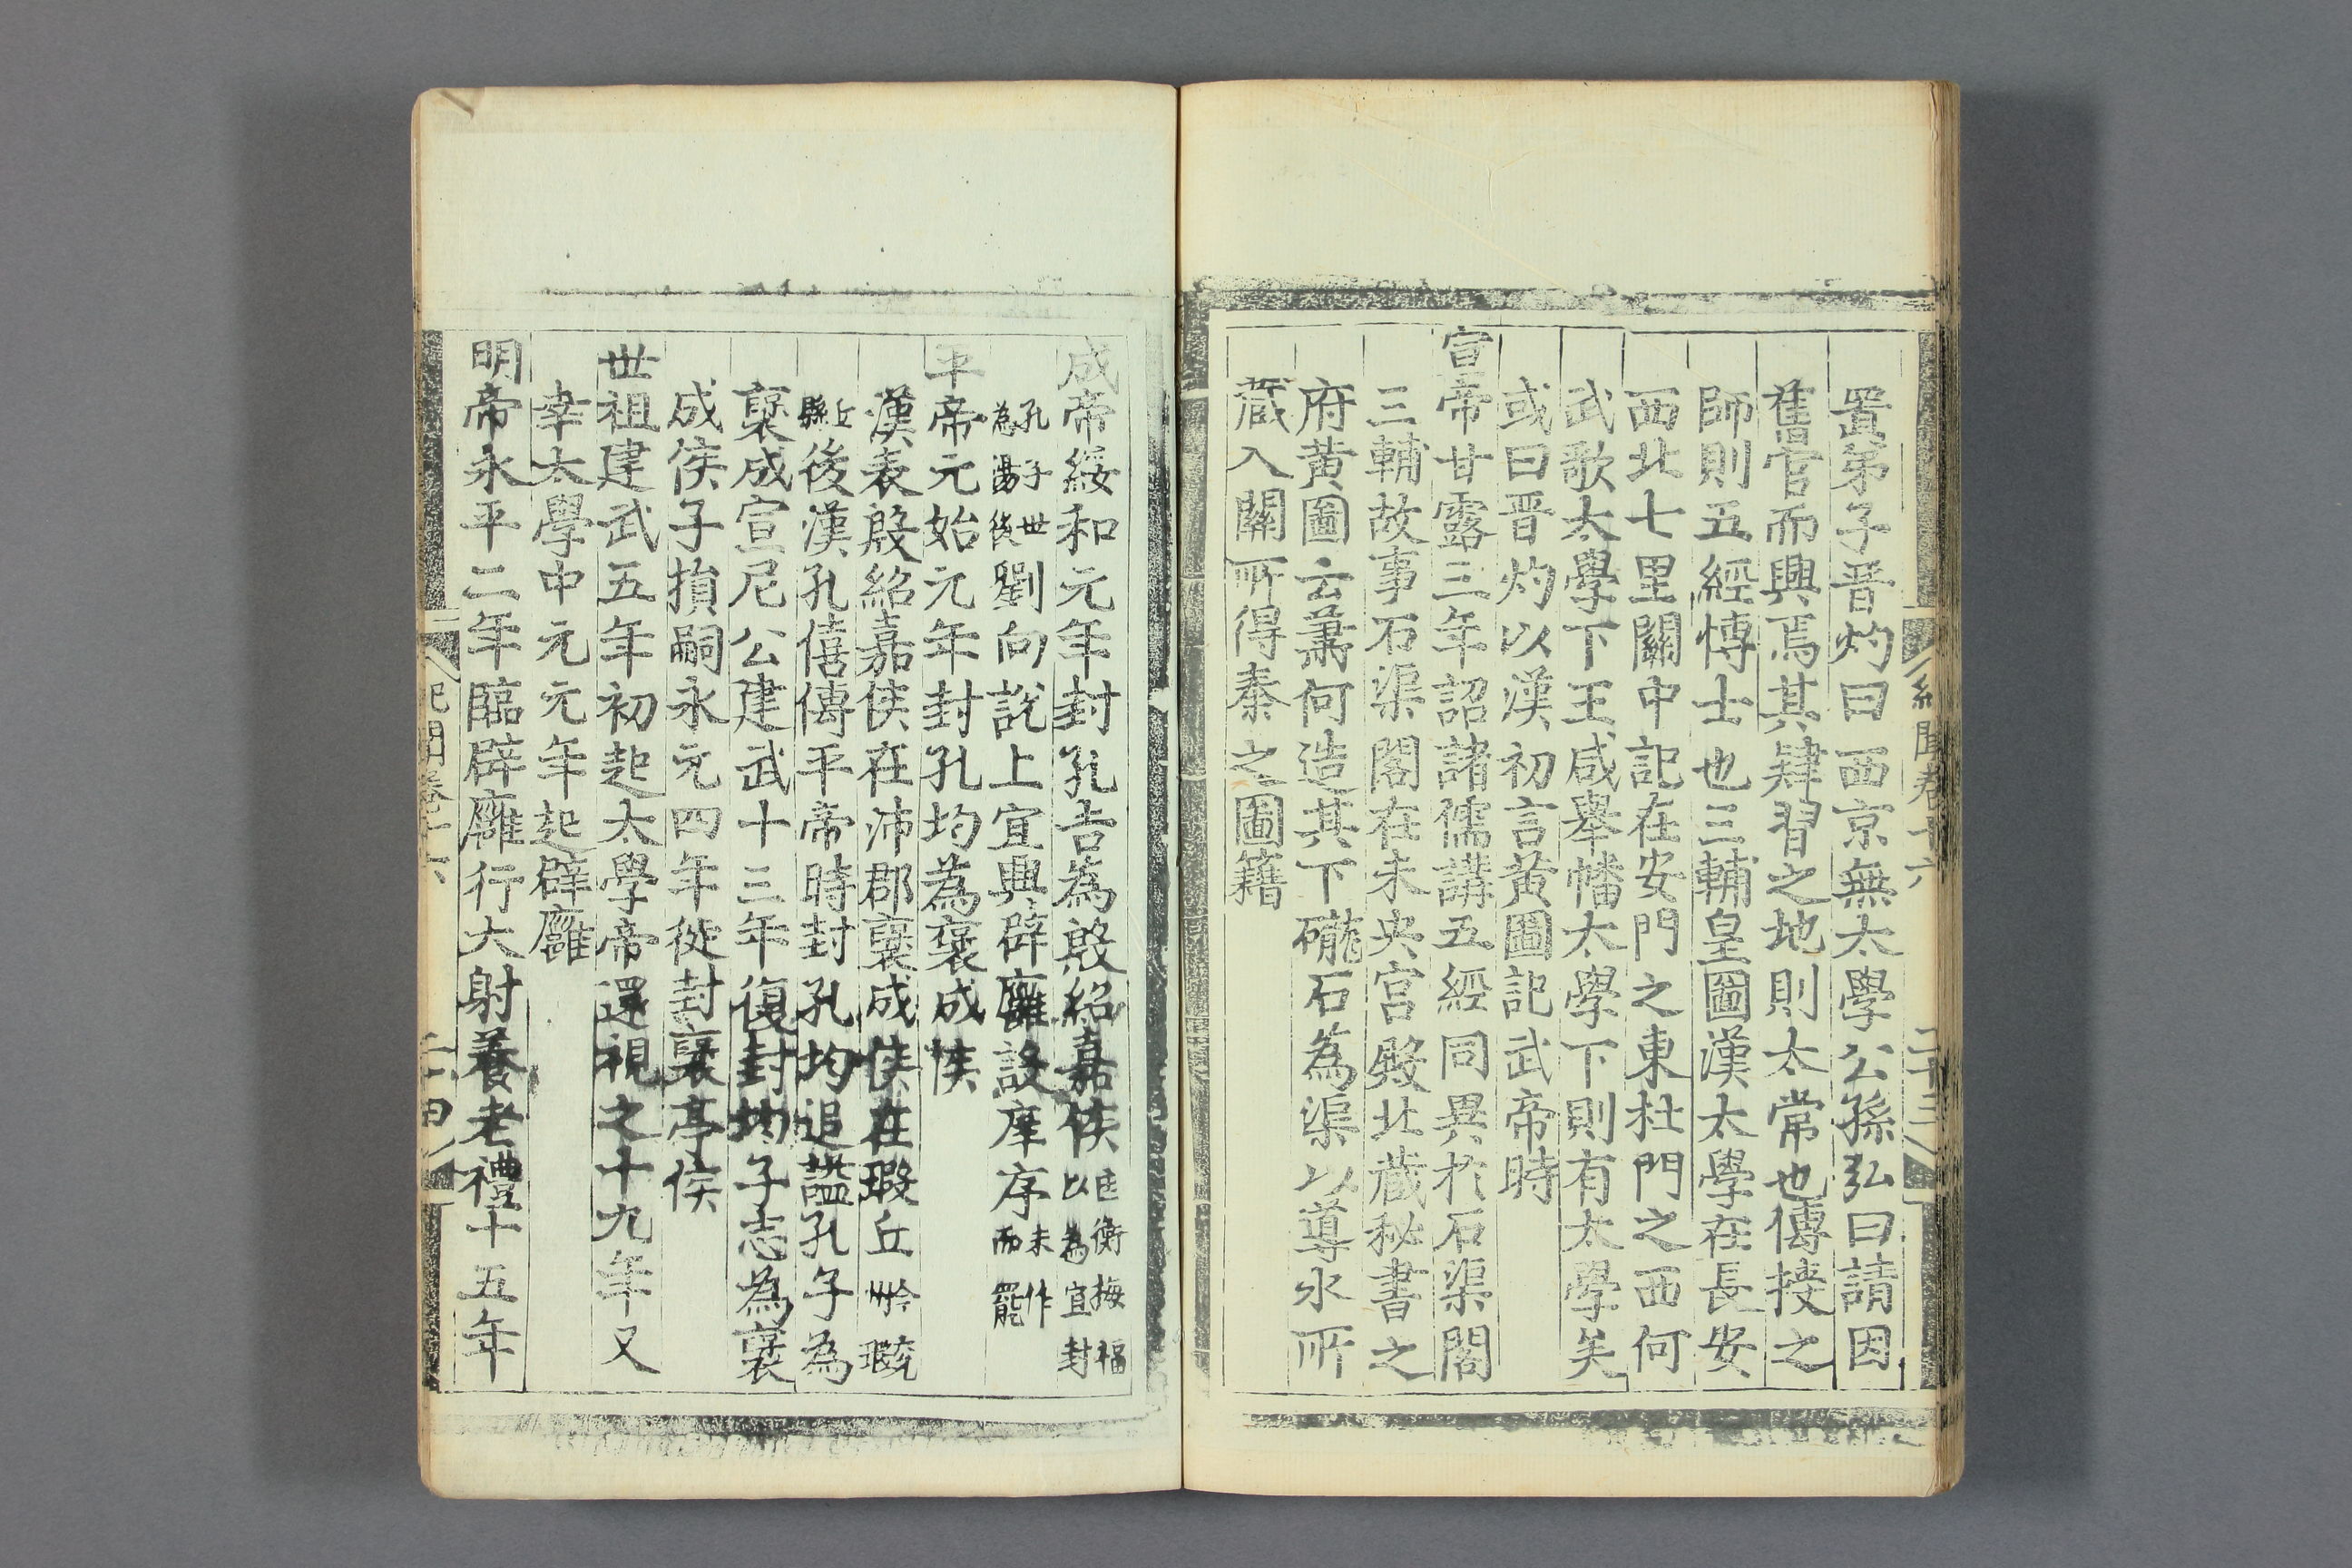 紀聞卷十六
二十三
置弟子晋灼曰西京無太學公孫弘曰請因
舊官而興焉其肄習之地則太常也傳授之
師則五經愽士也三輔皇圖漢太學在長安
西北七里關中記在安門之東杜門之西何
武歌太學下王咸舉幡太學下則有太學矣
或曰晋灼以漢初言黄圖記武帝時
宣帝甘露三年詔諸儒講五經同異於石渠閣
三輔故事石渠閣在未央宫殿北藏秘書之
府黄圖云蕭何造其下礲石為渠以導水所
藏入關所得秦之圖籍
成帝綏和元年封孔吉為殷紹嘉侯匡衡梅福以為宜封
孔子世為湯後劉向説上宜興辟廱設庠序未作而罷
平帝元始元年封孔均為褒成侯
漢表殷紹嘉侯在沛郡襃成侯在瑕丘今兖州瑕
丘縣後漢孔僖傳平帝時封孔均追謚孔子為
襃成宣尼公建武十三年復封均子志為襃
成侯子損嗣永元四年徙封襃亭侯
世祖建武五年初起太學帝還視之十九年又
幸太學中元元年起辟廱
明帝永平二年臨辟廱行大射養老禮十五年
紀聞卷十六
二十四